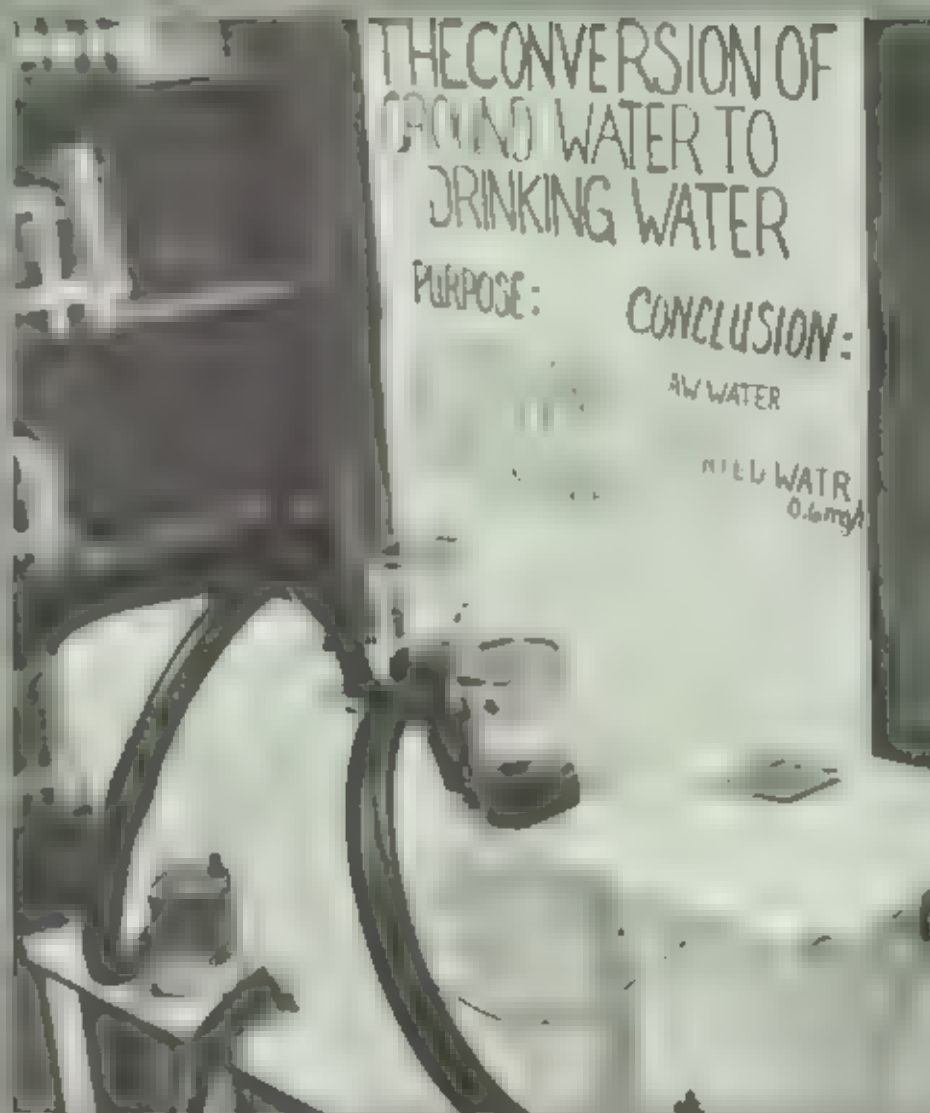 THE CONVERSION OF
GROUND WATER TO
DRINKING WATER
PURPOSE:
CONCLUSION:
AW WATER
WATR
0.6mg/l